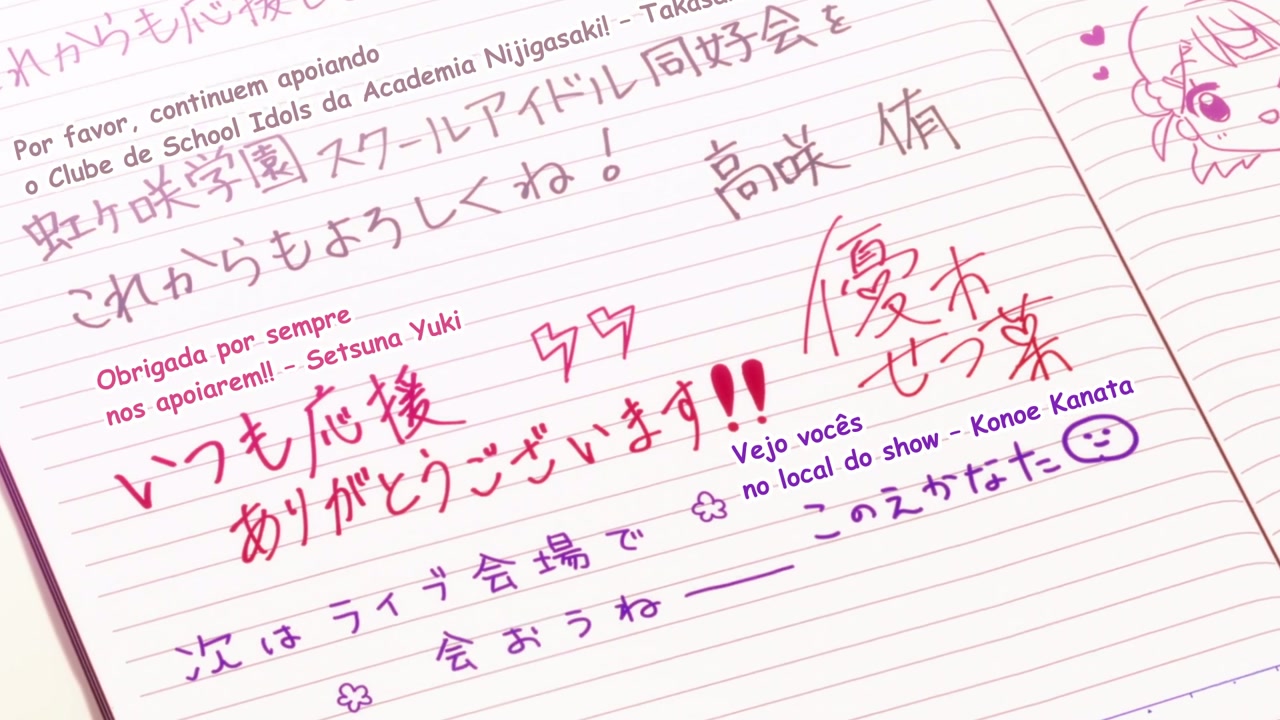 れからも応援し
Por favor, continuem apoiando
o Clube de School Idols da Academia Nijigasaki! - Takasa
虹ヶ咲学園スクールアイドル同好会を
これからもよろしくね！ 高咲 侑
Obrigada por sempre
nos apoiarem!! - Setsuna Yuki
いつも応援
ありがとうございます!!
優木
せつ菜
Vejo vocês
no local do show - Konoe Kanata
次はライブ会場で
会おうね―― このえかなた